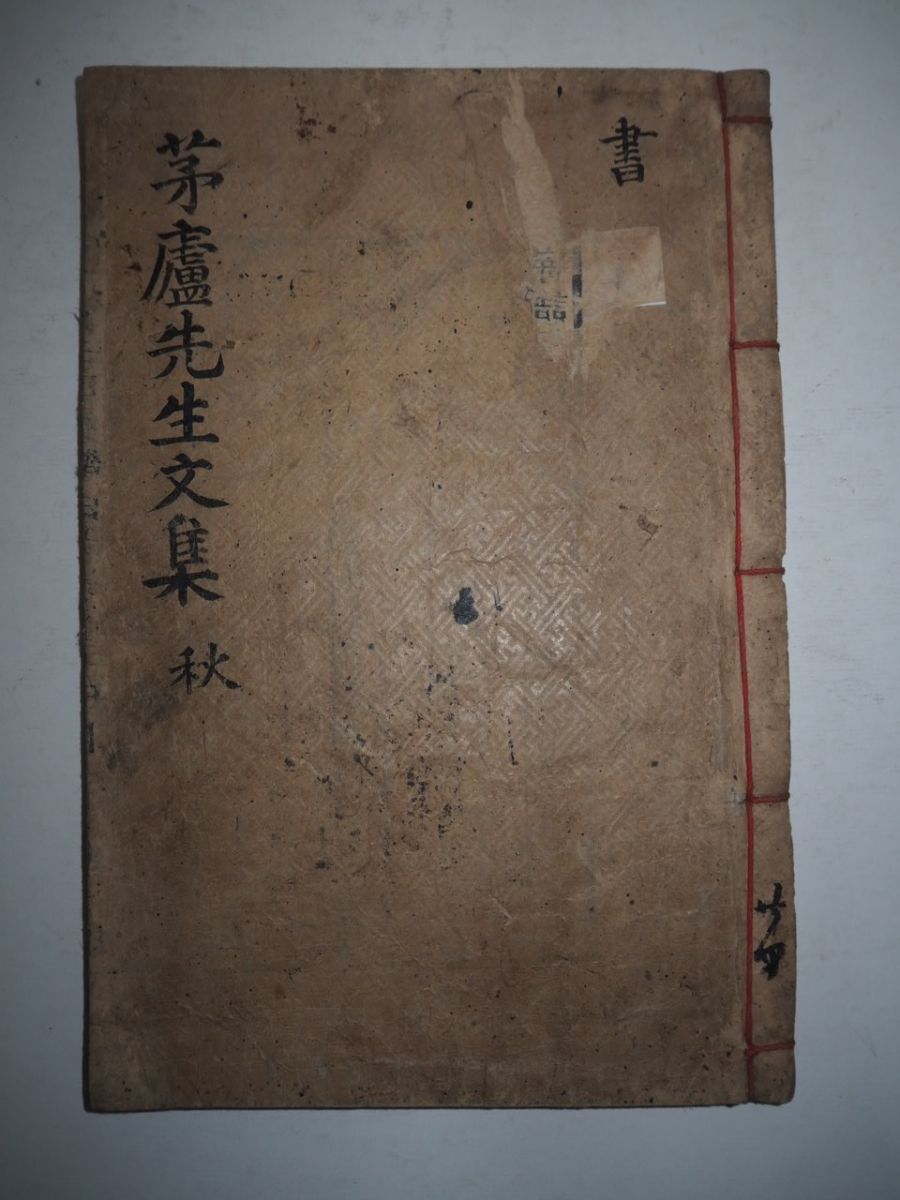 書
茅廬先生文集 秋